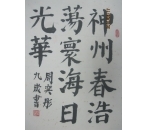 神州春浩
蕩寰海日
光華
周奕彤
九歲書